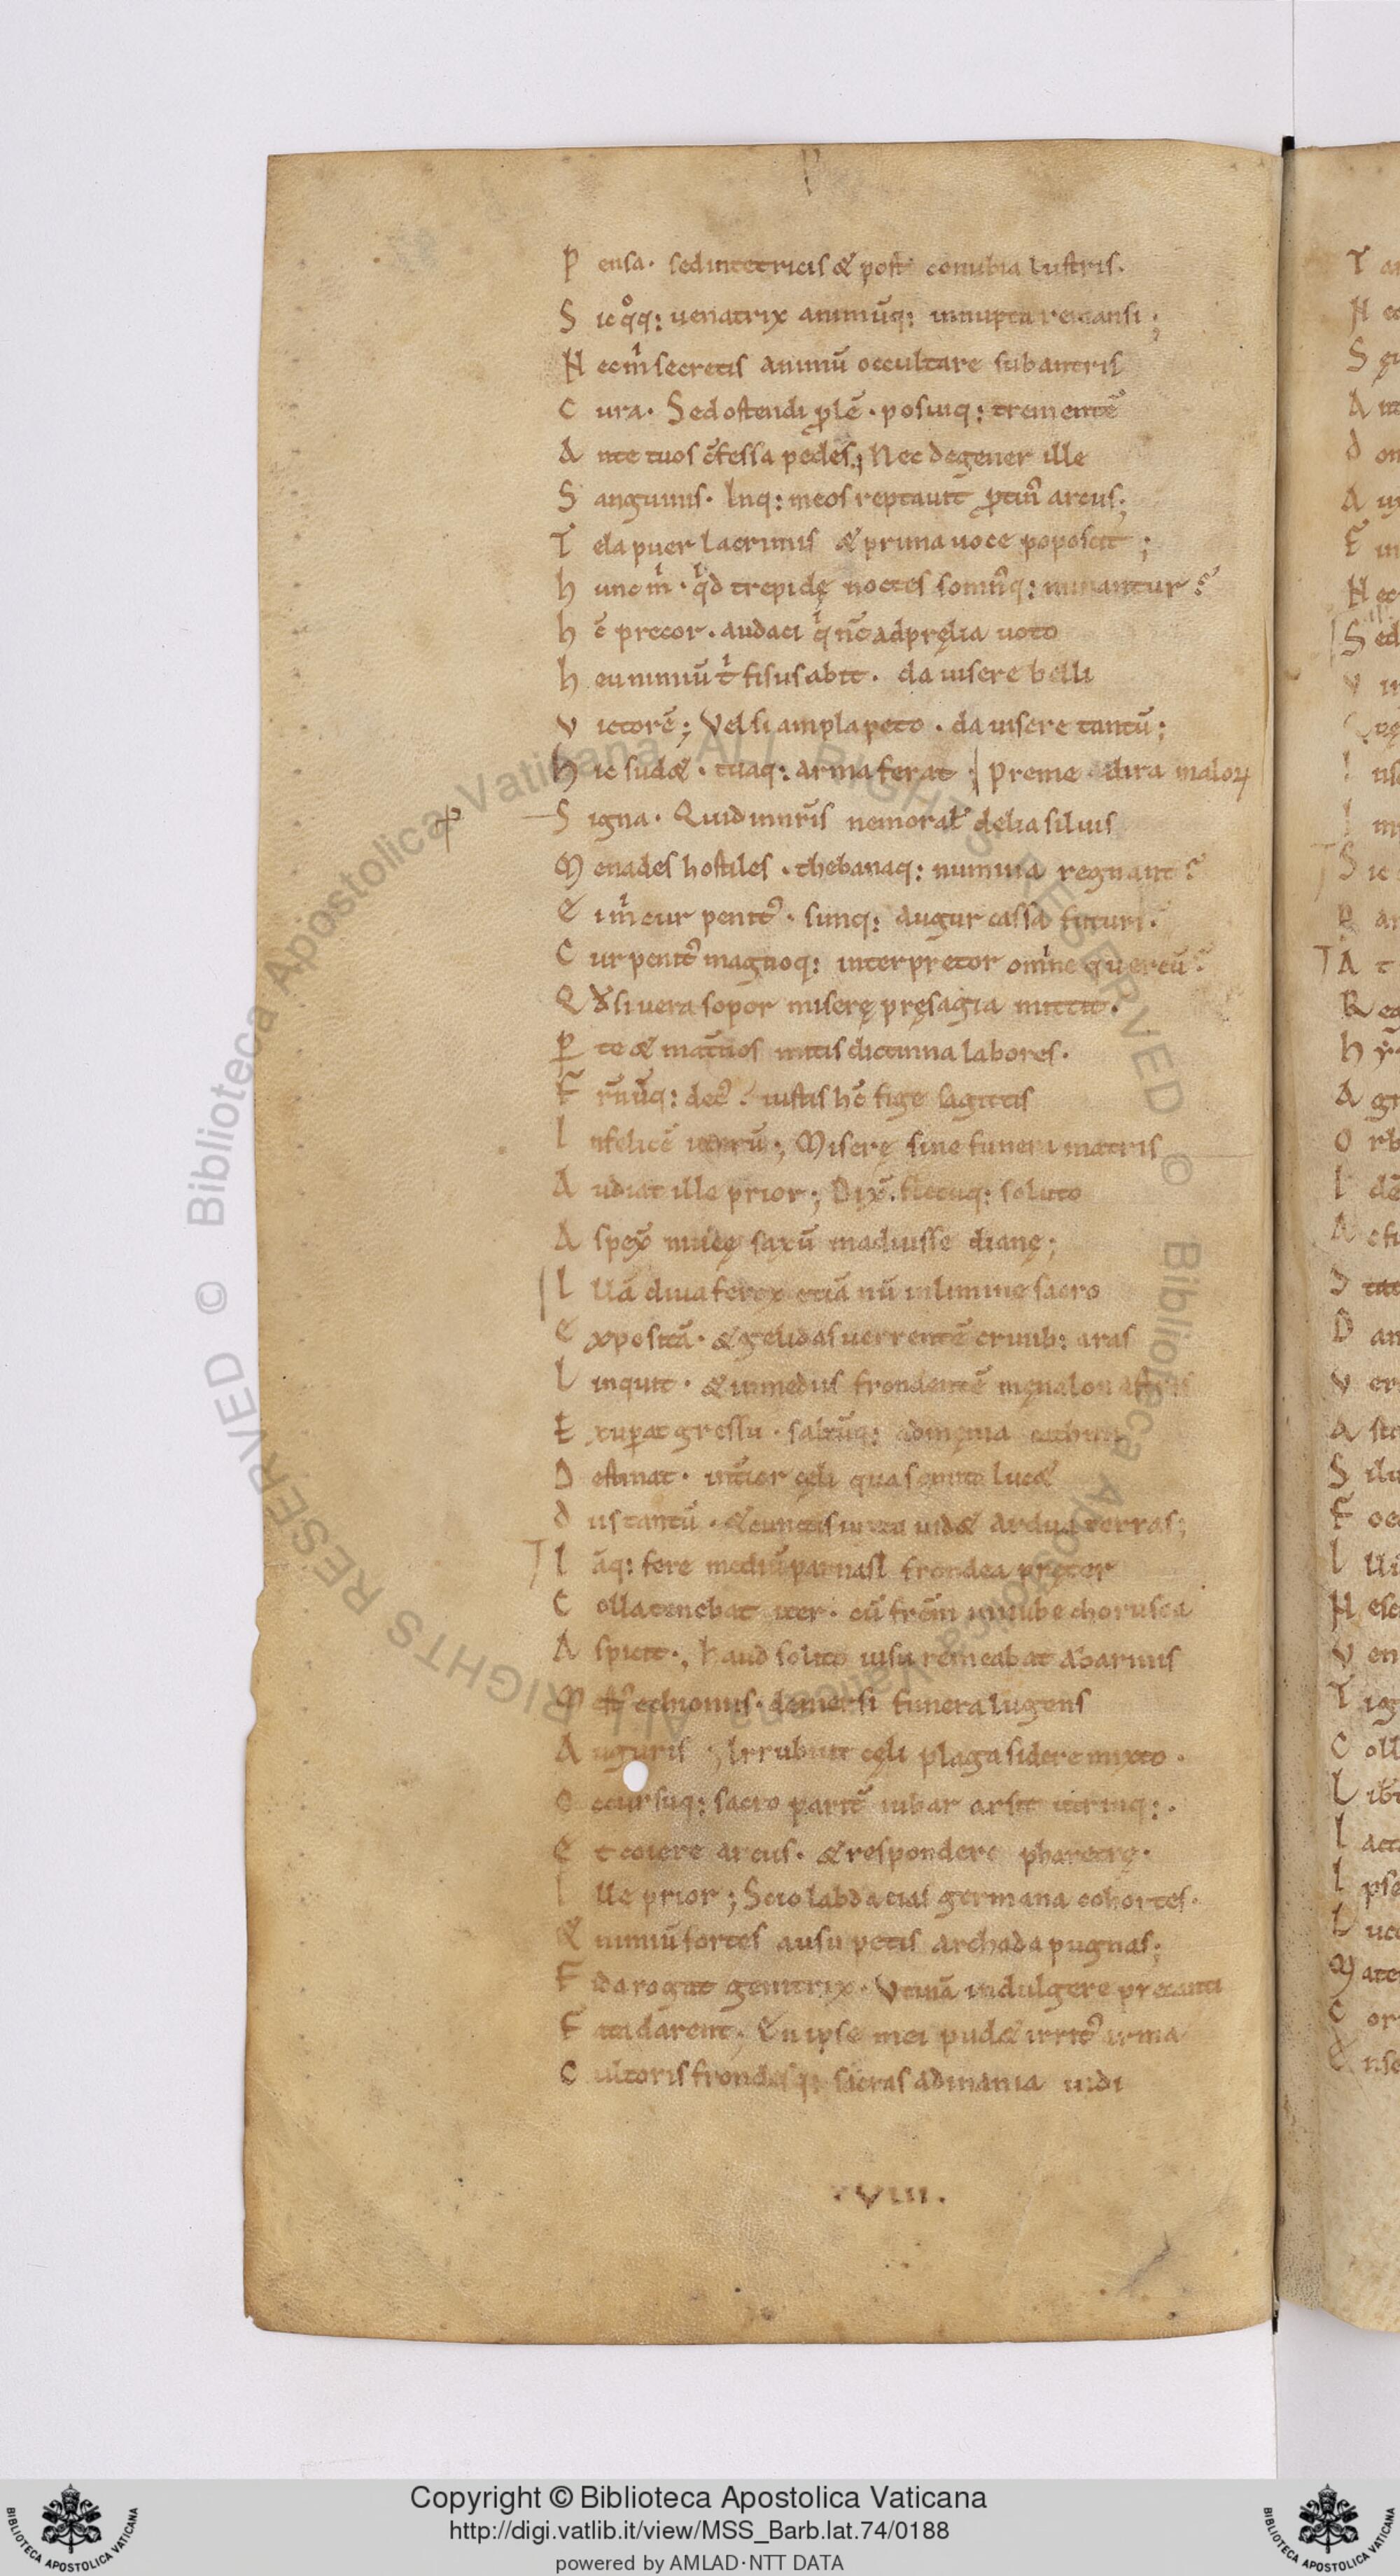 P ensa · sed intetricis & post conubia lustris.
S ic qͦq: uenatrix animūq: innupta remansi ;
N ec m̍ secretis animū occultare sub antris
C ura · Sed ostendi ꝓlē · posuiq: trementē
A nte tuos c̄fessa pedes ; Nec degener ille
S anguinis · Inq: meos reptauit ꝓtin᷒ arcus ;
T ela puer lacrimis & prima uoce poposcit ;
h unc m̍ · qd̍ trepidę noctes somn᷒q: minantur ?
h c̄ precor · audaci q̍ nc̄ ad pręlia uoto
h eu nimiū t̍ fisus abit · da uisere belli
V ictorē ; Vel si ampla peto · da uisere tantū ;
h ic sud& · tuaq: arma ferat ; preme dira maloꝝ
S igna · Quid in nr̄is nemoral᷒ delia siluis
M enades hostiles · thebanaq: numina regnant ?
E i m̍ cur penit᷒ · sinq: augur cassa futuri ·
C ur penit᷒ magnoq: interpretor omīne quercū ?
Q đ si uera sopor miserę pręsagia mittit ·
ꝑ te & mat̄nos mitis dictinna labores ·
F r̄nūq: dec᷒ · iustis hc̄ fige sagittis
I nfelicē uterū ; Miserę sine funera matris
A udiat ille prior ; Dix̄ · fletuq: soluto
A spex̄ niueę saxū maduisse dianę ;
I llā diua ferox etiā nū in limine sacro
E xpositā · & gelidas uerrentē crinib: aras
L inquit · & in mediis frondentē męnalon
E xuꝑat gressu · saltūq: ad męnia
D estinat · int̄ior cęli qua semita luc&
d iis tantū · & cunctis iuxta uid& ardua terras ;
I āq: fere mediū parnasi frondea pręter
C olla tenebat iter · cū frēm in nube chorusca
A spicit · haud solito uisu remeabat ab armis
M est᷒ echioniis · demersi funera lugens
A uguris ; Irrubuit cęli plaga sidere mixto ·
O ccursuq: sacro parit̄ iubar arsit utrinq: ·
E t coiere arcus · & respondere pharetrę ·
I lle prior ; Scio labdacias germana cohortes ·
& nimiū fortes ausu petis archada pugnas ;
F ida rogat genitrix · Vtinā indulgere precanti
F ata darent ; En ipse mei pud& irrit᷒ arma
C ultoris frondesq: sacras ad inania uidi
VIII ·
Copyright © Biblioteca Apostolica Vaticana
http://digi.vatlib.it/view/MSS_Barb.lat.74/0188
powered by AMLAD·NTT DATA